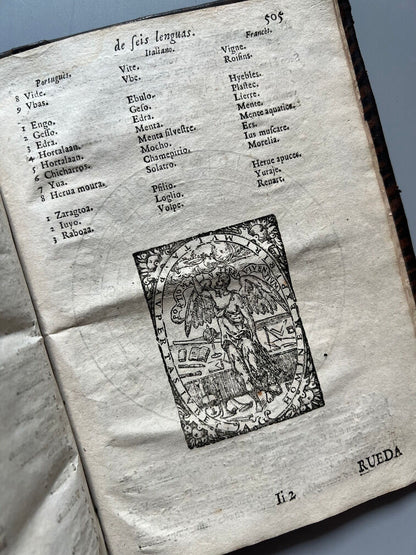 505
de seis lenguas.
Portugues. Italiano. Francés.
8 Vide. Vite. Vigne.
9 Vbas. Vbe. Roisins.
1 Engo. Ebulo. Hyebles.
2 Gesso. Geso. Plastec.
3 Edra. Edra. Lierre.
4 Hortalaan. Menta. Mente.
5 Hortalaan. Menta silvestre. Mente aquatice.
6 Chicharros. Mocho. Ers.
7 Yua. Chamepitio. Ius muscate.
8 Herua moura. Solatro. Morelia.
1 Zaragtoa. Psilio. Herue apuces.
2 Iuyo. Loglio. Yuraje.
3 Raboza. Volpe. Renart.
Ii 2
RUEDA